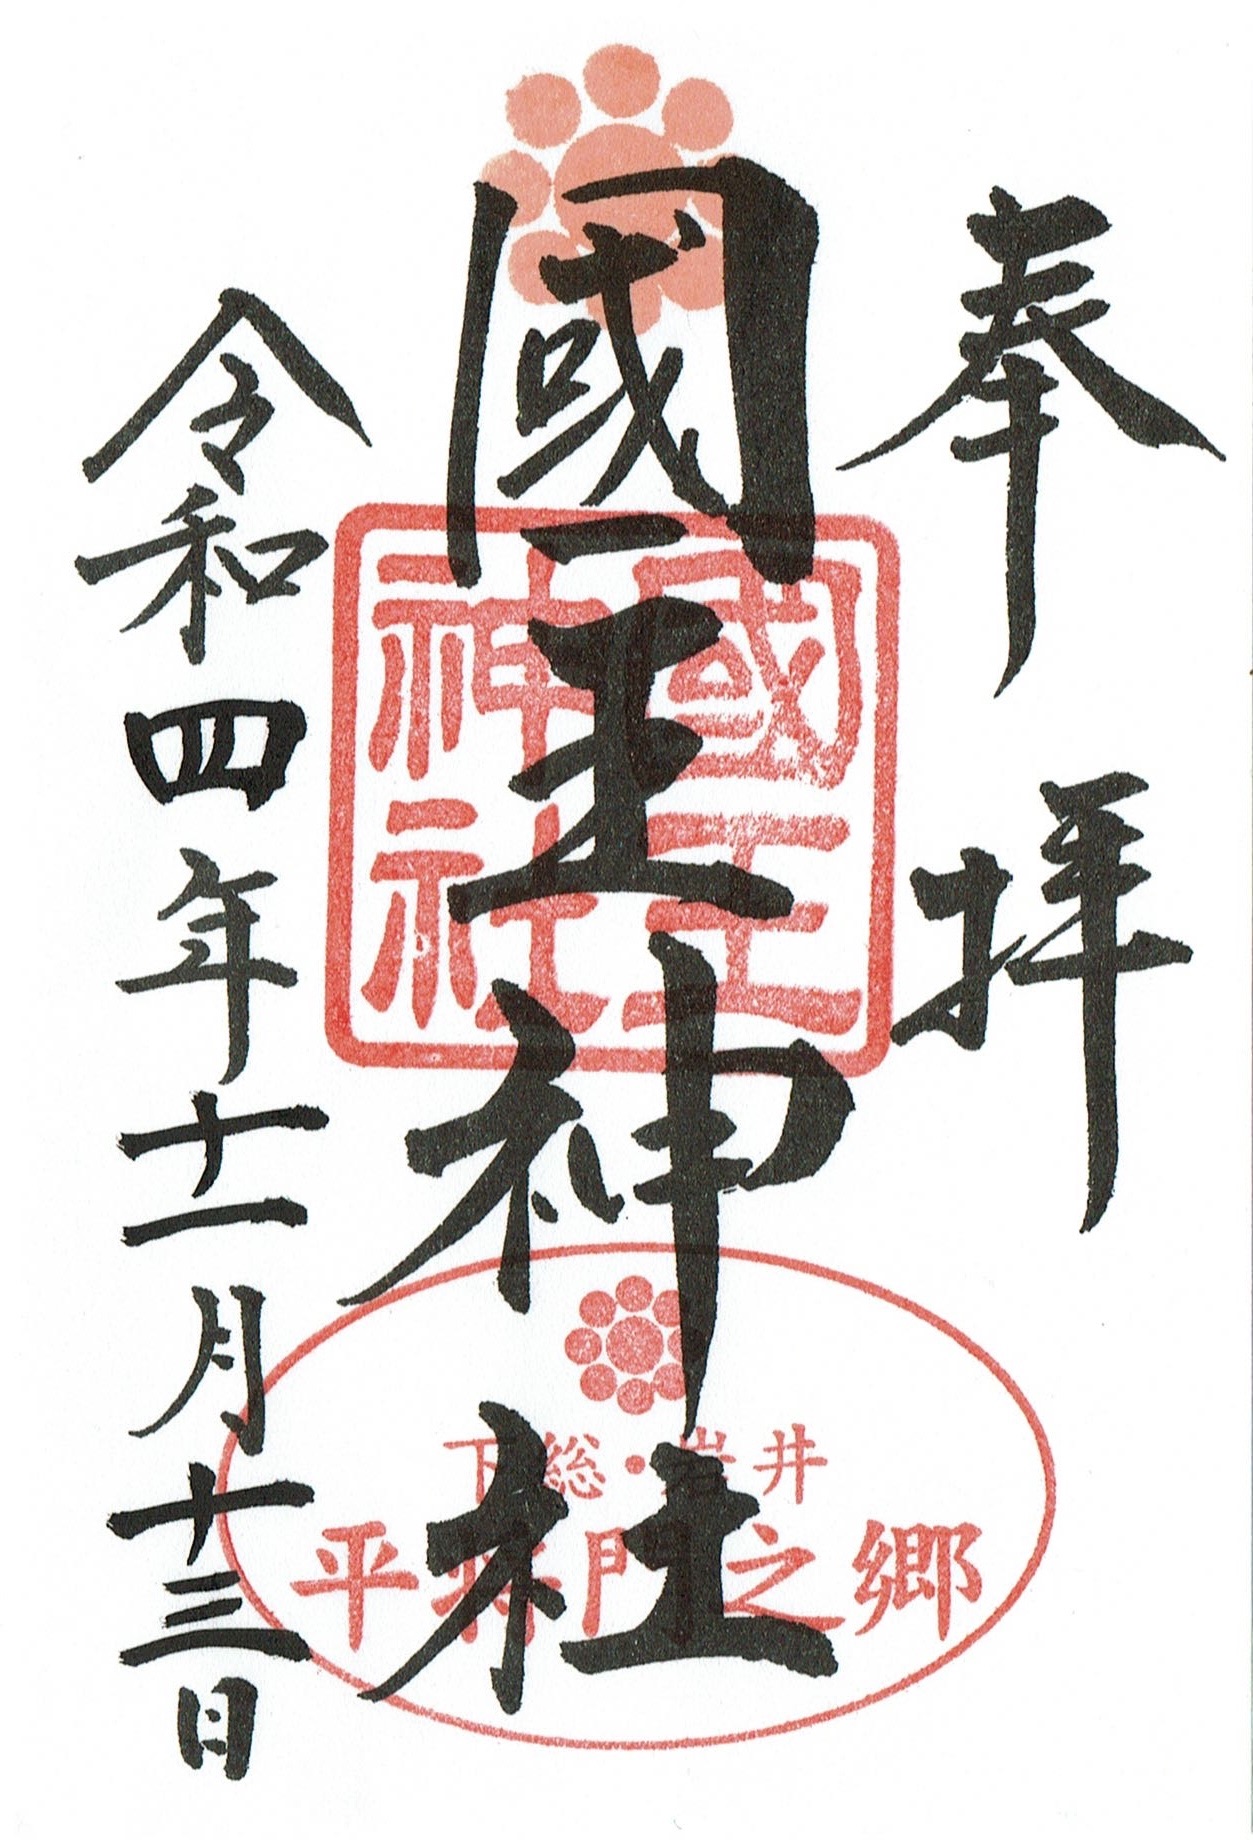 奉拝
國王神社
令和四年十一月十三日
國王
神社
下総・岩井
平将門之郷